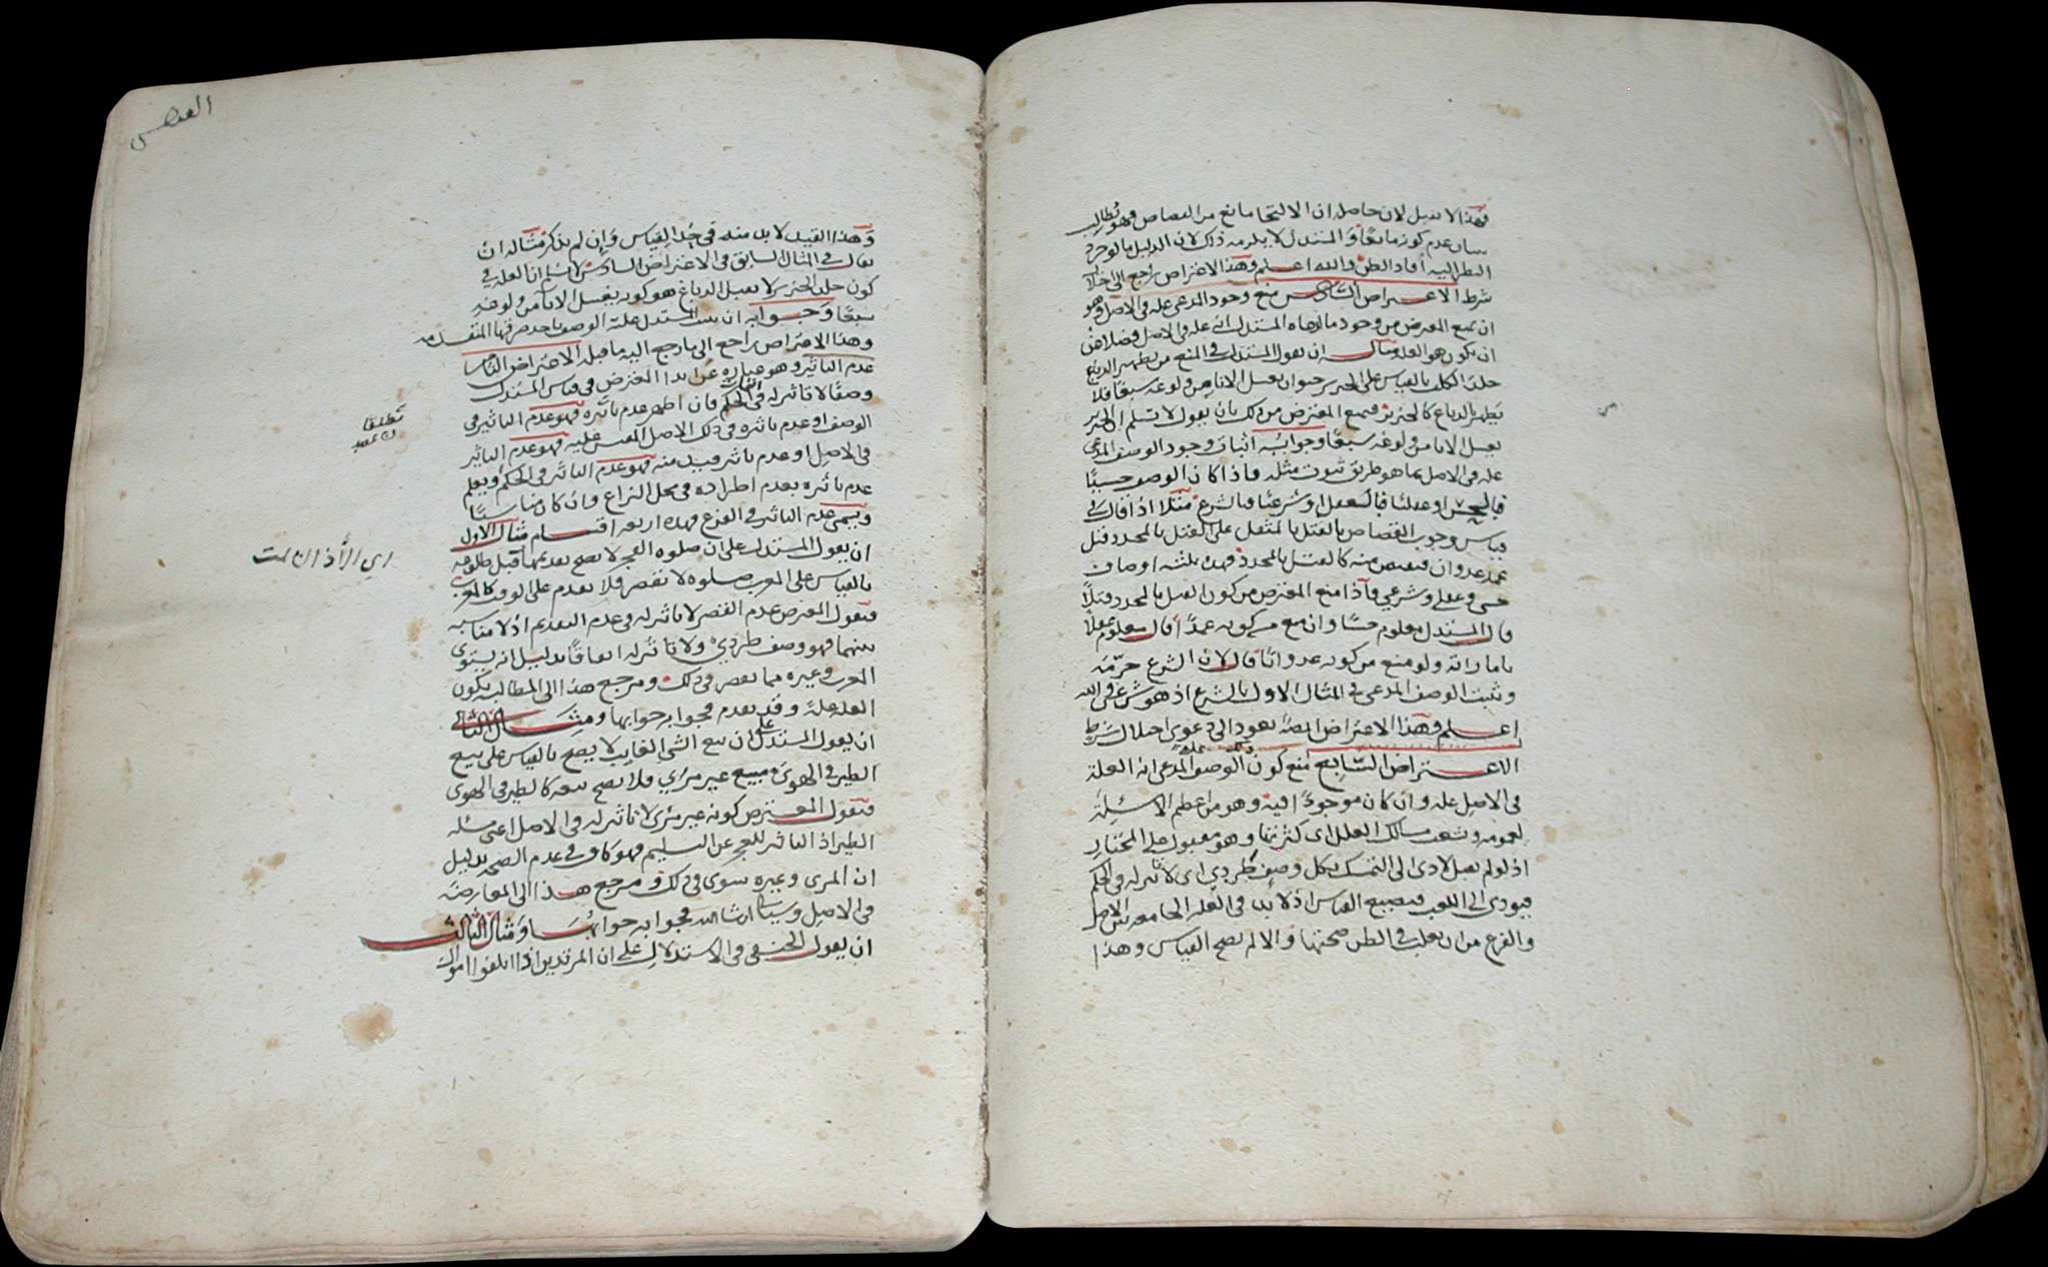 فهذا لا يقبل لان حاصله ان الالتجا مانع من القصاص فهو يطالب
ببيان عدم كونه مانعًا والمستدل لا يلزمه ذلك لان الدليل ما لو جرد
النظر اليه أفاد الظن والله اعلم وهذا الاعتراض راجع الى اختلال
شرط الاعتراض السّادس منع وجود المدعى علة في الاصل وهو
ان يمنع المعترض من وجود ما ادعاه المستدل انه علة في الاصل فضلا عن
ان يكون هو العلة ومثاله ان يقول المستدل في المنع من تطهير الدباغ
جلد الكلب بالقياس على الخنزير حيوان يغسل الانا من ولوغه سبعًا فلا
يطهر بالدباغ كالخنزير فيمنع المعترض من ذلك بان يقول لا نسلم ان الخنزير
يغسل الانا من ولوغه سبعًا وجوابه اثبات وجود الوصف المدعى
علة في الاصل بما هو طريق ثبوت مثله فاذا كان الوصف حسيًّا
فبالحس او عقليًّا فبالعقل او شرعيًّا فبالشرع مثلا اذا قال في
قياس وجوب القصاص بالقتل بالمثقل على القتل بالمحدد قتل
عمد عدوان فيقتص منه كالقتل بالمحدد فهذه ثلثة اوصاف
حسي وعقلي وشرعي فاذا منع المعترض من كون القتل بالمحدد قتلاً
قال المستدل معلوم حسًّا وان منع من كونه عمدًا قال معلوم عقلاً
باماراته ولو منع من كونه عدوانًا قال لان الشرع حرّمه
وثبت الوصف المدعى في المثال الاول بالشرع اذ هو شرعي والله
اعلم وهذا الاعتراض ايضا يعود الى دعوى اختلال شرط
الاعتراض السّابع منع كون الوصف المدعى انه العلة
في الاصل علة وان كان موجودًا فيه وهو من اعظم الاسئلة
لعمومه وتشعب مسالك العلل اى كثرتها وهو مقبول على المختار
اذ لو لم يقبل لادى الى التمسك بكل وصف طردي اى لا تاثير له في الحكم
فيؤدي الى اللعب فيضيع القياس اذ لا بد في العلة الجامعة بين الاصل
والفرع من ان يغلب في الظن صحتها والا لم يصح القياس وهذا
العضـ
وهذا القيد لا بد منه في حد القياس وان لم يذكر مثاله ان
يقال في المثال السابق في الاعتراض السادس لا نسلم ان العلة في
كون جلد الخنزير لا يقبل الدباغ هو كونه يغسل الانا من ولوغه
سبعًا وجوابه ان يثبت المستدل علية الوصف باحد طرقها المتقدمة
وهذا الاعتراض راجع الى ما رجع اليه ما قبله الاعتراض الثامن
عدم التاثير وهو عبارة عن ابدا المعترض في قياس المستدل
وصفًا لا تاثير له في اثبات الحكم فان اظهر عدم تاثيره فهو عدم التاثير في
الوصف او عدم تاثيره في ذلك الاصل المقيس عليه فهو عدم التاثير
في الاصل او عدم تاثير قيد منه فهو عدم التاثير في الحكم ويعلم
عدم تاثيره بعدم اطراده في محل النزاع وان كان مناسبًا
ويسمى عدم التاثير في الفرع فهذه اربعة اقسام مثال الاول
ان يقول المستدل على ان صلوة الفجر لا يصح تقديمها قبل طلوعه
بالقياس على المغرب صلوة لا تقصر فلا تقدم على الوقت كالمغرب
فيقول المعترض عدم القصر لا تاثير له في عدم التقديم اذ لا مناسبة
بينهما فهو وصف طردي ولا تاثير له اتفاقًا بدليل انه يستوي
المغرب وغيره مما يقصر في ذلك ومرجع هذا الى المطالبة بكون
العلة علة وقد تقدم فجوابه جوابها ومثال الثاني
ان يقول المستدل على ان بيع الشي الغايب لا يصح بالقياس على بيع
الطير في الهوى مبيع غير مرئي فلا يصح بيعه كالطير في الهوى
فيقول المعترض كونه غير مرئي لا تاثير له في الاصل اعني مسئلة
الطير اذ التاثير للعجز عن التسليم فهو كاف في عدم الصحة بدليل
ان المرئى وغيره سوى في ذلك ومرجع هذا الى المعارضة
في الاصل وسياتي ان شا الله فجوابه جوابها ومثال الثالث
ان يقول الحنفي في الاستدلال على ان المرتدين اذا اتلفوا اموال
مطلقا
اي الأذان